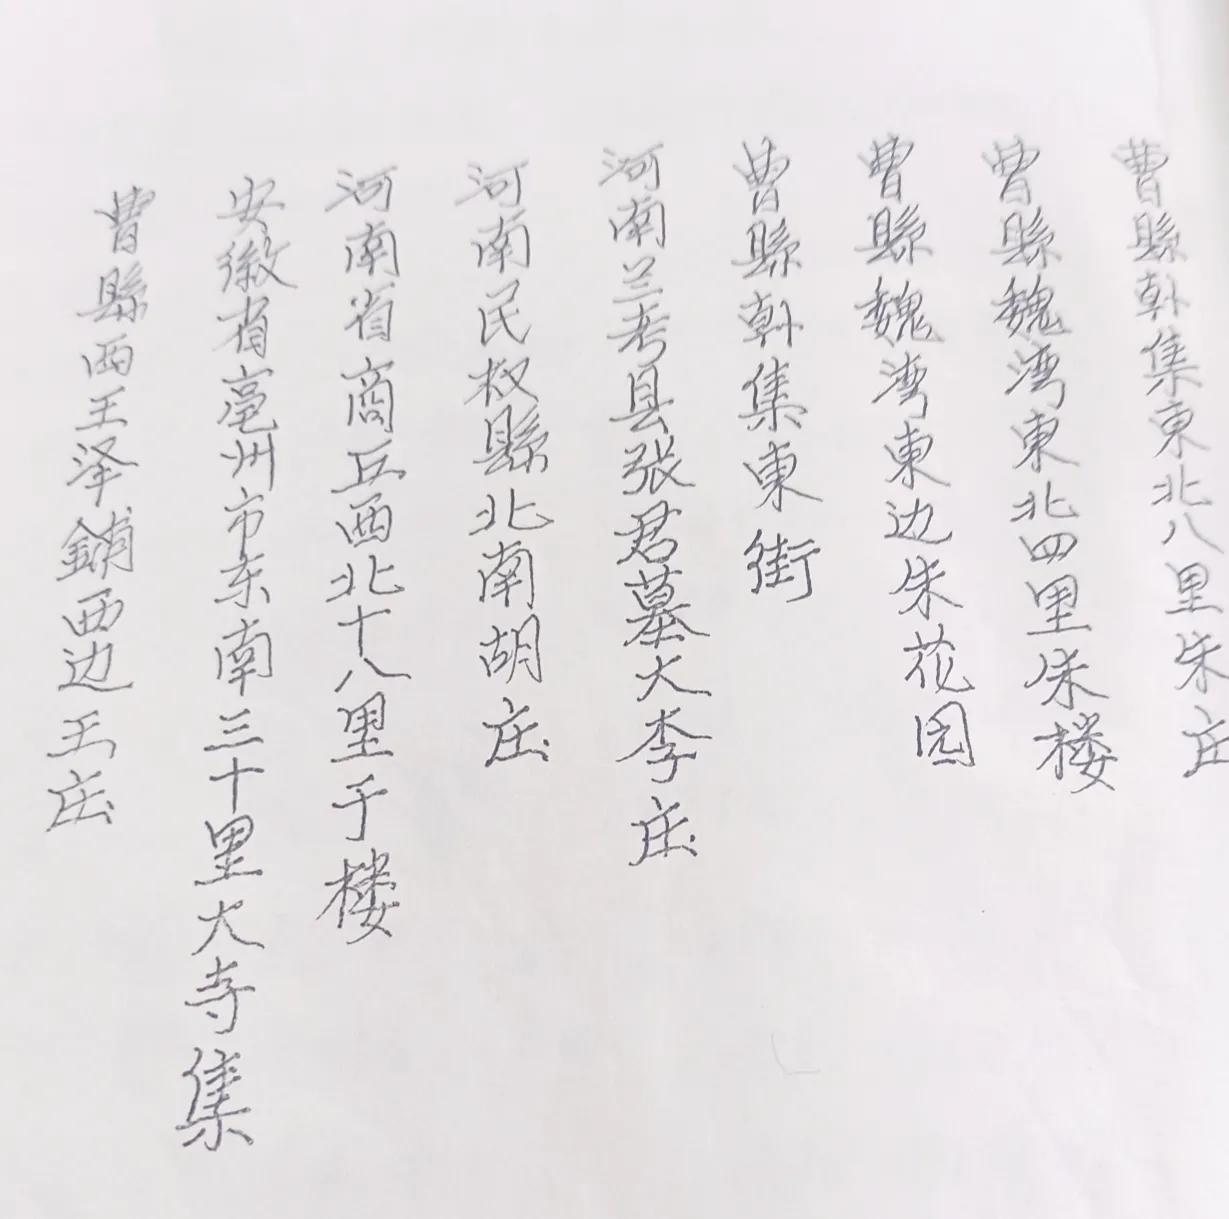 曹縣韩集東北八里朱庄
曹縣魏湾東北四里朱楼
曹縣魏湾東边朱花园
曹縣韩集東街
河南兰考县张君墓大李庄
河南民权縣北南胡庄
河南省商丘西北十八里于楼
安徽省亳州市东南三十里大寺集
曹縣西王泽鋪西边王庄